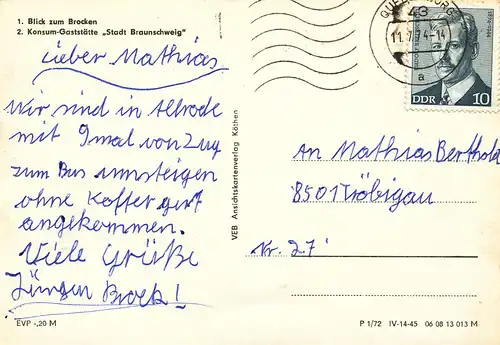 1. Blick zum Brocken
2. Konsum-Gaststätte „Stadt Braunschweig"
Lieber Mathias
Wir sind in Allrode
mit 9mal von Zug
zum Bus umsteigen
ohne Koffer gut
angekommen.
Viele Grüße
Jürgen Brock!
EVP -,20 M
VEB Ansichtskartenverlag Köthen
43
11.7.74-14
a
DDR 10
An Mathias Berthold
8501 Tröbigau
Nr. 27
P 1/72 IV-14-45 06 08 13 013 M